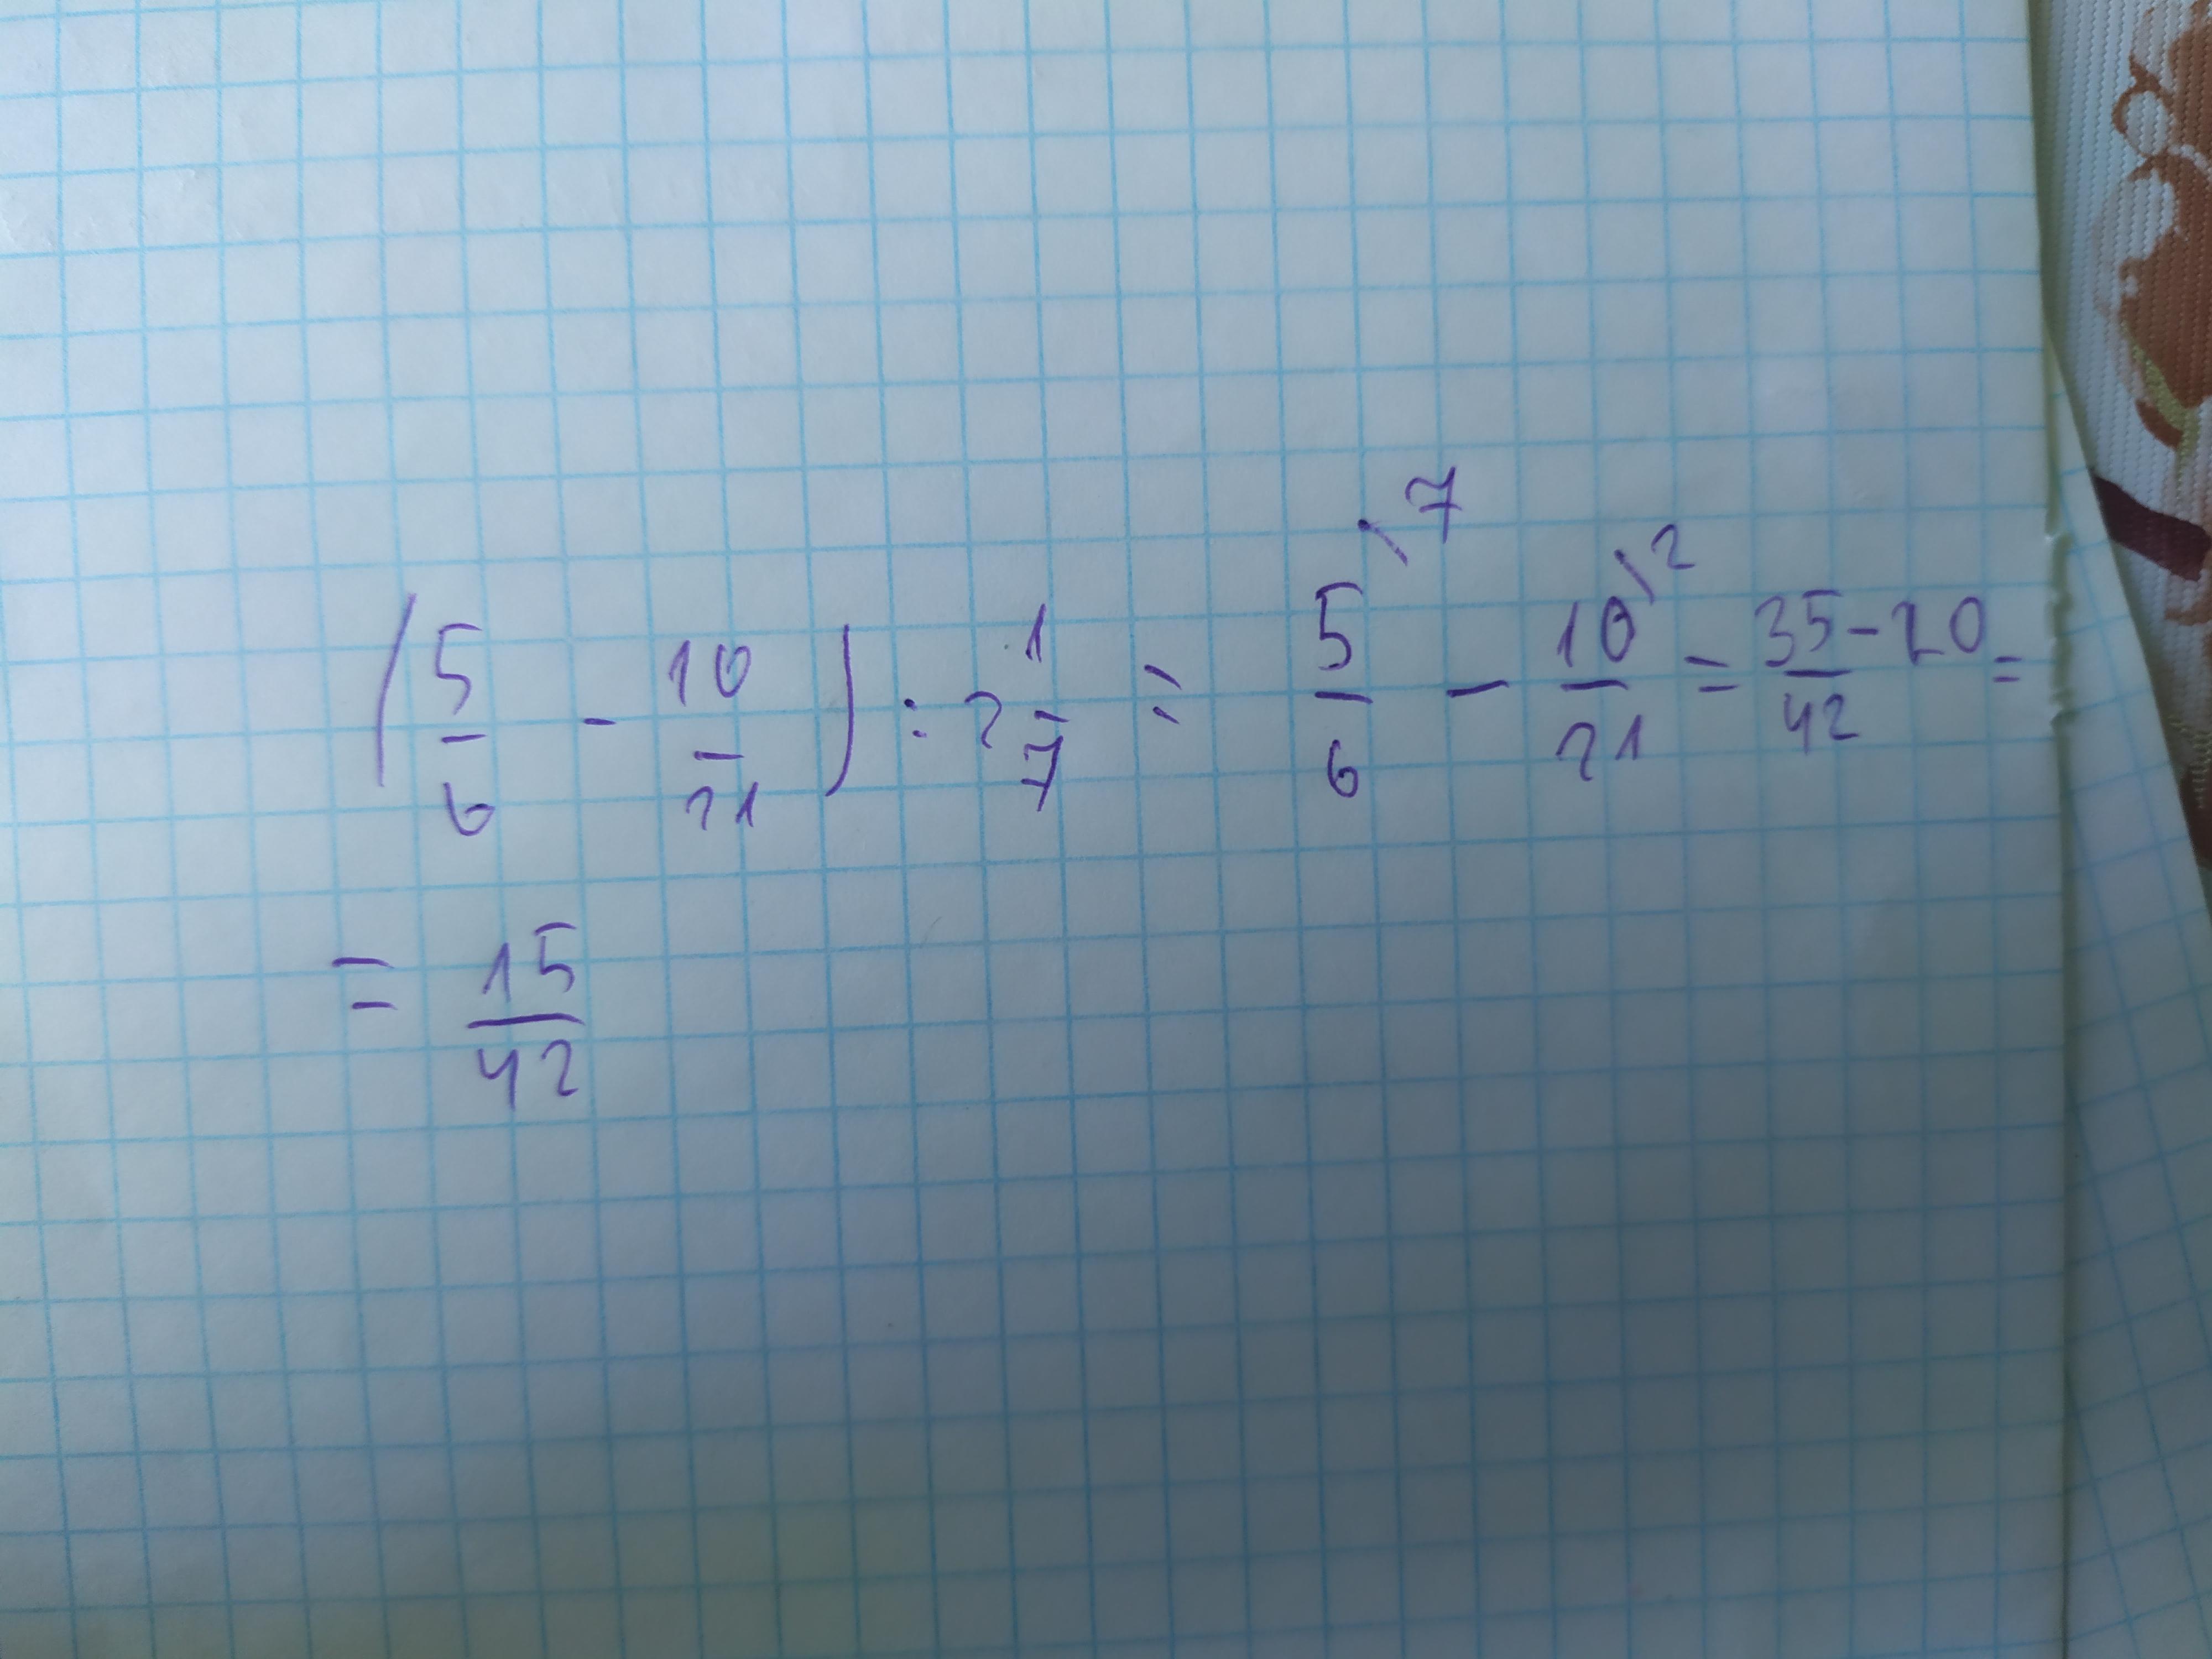 (5/6 - 10/21) : 2 1/7 = 5/6 \7 - 10/21 \2 = 35-20/42 =
= 15/42